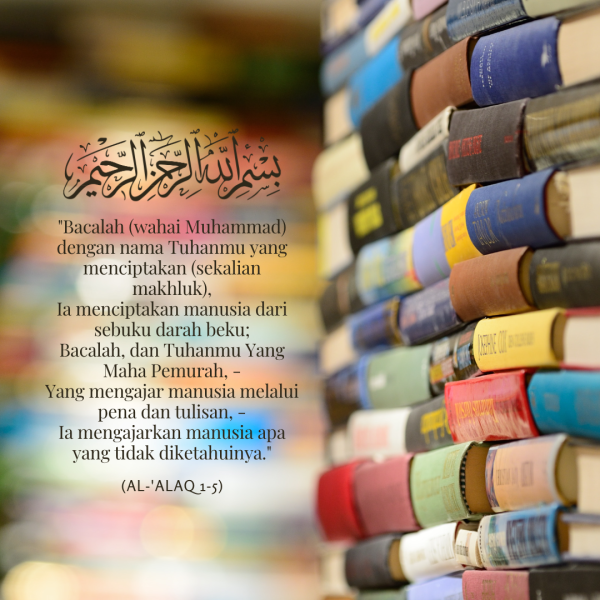 بِسْمِ اللَّهِ الرَّحْمَٰنِ الرَّحِيمِ
"Bacalah (wahai Muhammad)
dengan nama Tuhanmu yang
menciptakan (sekalian
makhluk),
Ia menciptakan manusia dari
sebuku darah beku;
Bacalah, dan Tuhanmu Yang
Maha Pemurah, -
Yang mengajar manusia melalui
pena dan tulisan, -
Ia mengajarkan manusia apa
yang tidak diketahuinya."
(AL-'ALAQ 1-5)